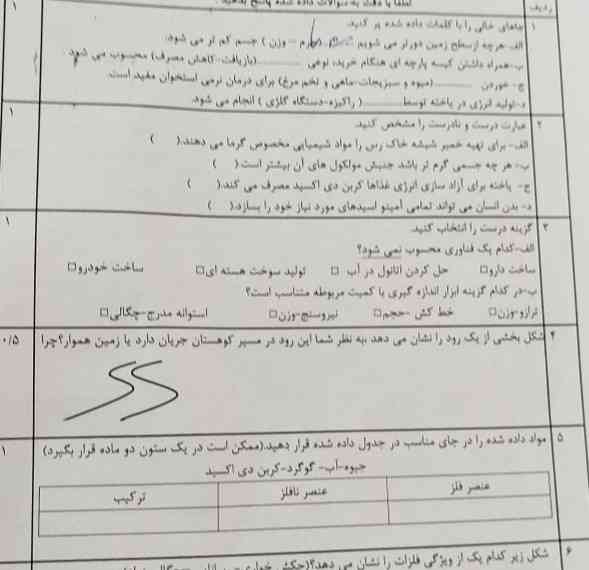 ردیف
لطفا با دقت به سوالات داده شده پاسخ بدهید.
۱
۱ جاهای خالی را با کلمات داده شده پر کنید.
الف-هرچه ازسطح زمین دورتر می شویم ( – وزن ) جسم کم تر می شود.
ب-همراه داشتن کیسه پارچه ای هنگام خرید، نوعی ............(بازیافت-کاهش مصرف) محسوب می شود
ج- خوردن ............(میوه و سبزیجات-ماهی و تخم مرغ) برای درمان نرمی استخوان مفید است.
د-تولید انرژی در یاخته توسط............( راکیزه-دستگاه گلژی ) انجام می شود.
۲ عبارت درست و نادرست را مشخص کنید. ۱
الف- برای تهیه خمیر شیشه خاک رس را مواد شیمیایی مخصوص گرما می دهند.( )
ب- هر چه جسمی گرم تر باشد جنبش مولکول های آن بیشتر است( )
ج- یاخته برای آزاد سازی انرژی غذاها کربن دی اکسید مصرف می کند.( )
د- بدن انسان می تواند تمامی آمینو اسیدهای مورد نیاز خود را بسازد.( )
۳ گزینه درست را انتخاب کنید. ۱
الف-کدام یک فناوری محسوب نمی شود؟
ساخت دارو□ حل کردن اتانول در آب □ تولید سوخت هسته ای□ ساخت خودرو□
ب-در کدام گزینه ابزار اندازه گیری با کمیت مربوطه متناسب است؟
ترازو-وزن□ خط کش -حجم□ نیروسنج-وزن□ استوانه مدرج-چگالی□
۴ شکل بخشی از یک رود را نشان می دهد ،به نظر شما این رود در مسیر کوهستان جریان دارد یا زمین هموار؟چرا ۰/۵
۵ مواد داده شده را در جای مناسب در جدول داده شده قرار دهید.(ممکن است در یک ستون دو ماده قرار بگیرد) ۱
جیوه-آب- گوگرد-کربن دی اکسید
عنصر فلز عنصر نافلز ترکیب
۶ شکل زیر کدام یک از ویژگی فلزات را نشان می دهد؟(چکش خواری-